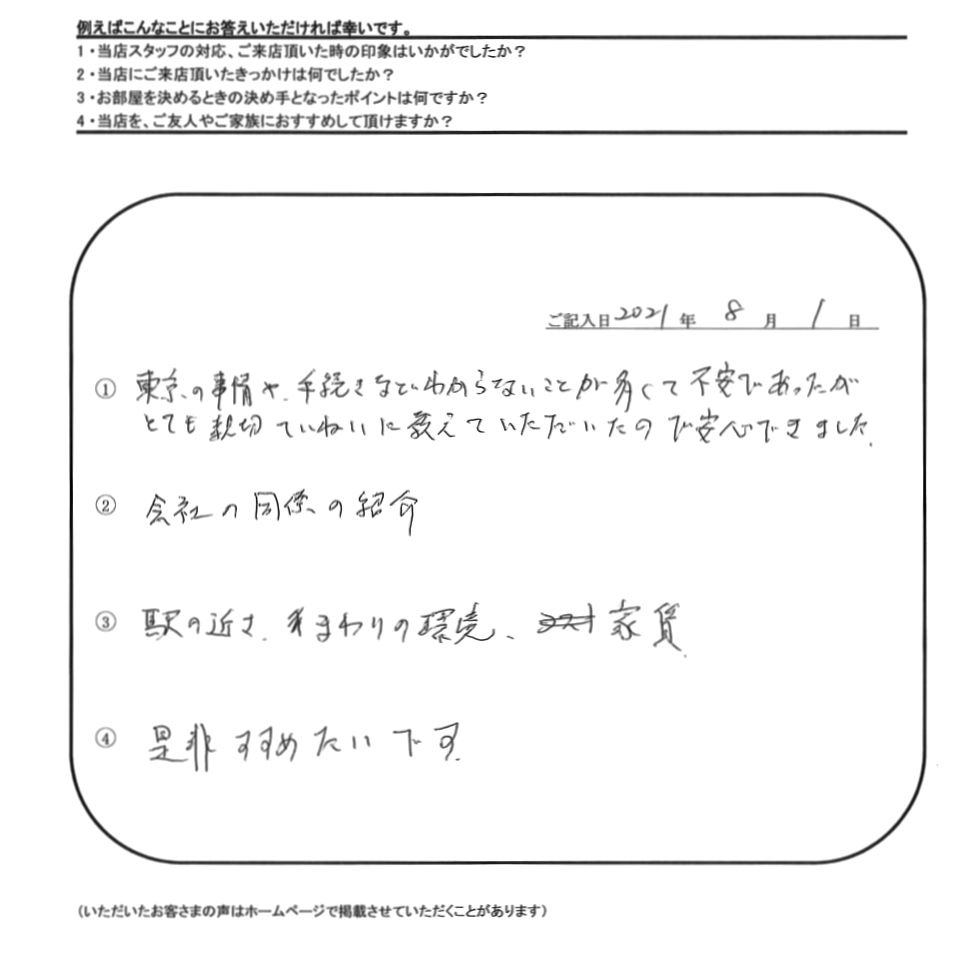 例えばこんなことにお答えいただければ幸いです。
1・当店スタッフの対応、ご来店頂いた時の印象はいかがでしたか?
2・当店にご来店頂いたきっかけは何でしたか?
3・お部屋を決めるときの決め手となったポイントは何ですか?
4・当店を、ご友人やご家族におすすめして頂けますか?
ご記入日 2021 年 8 月 1 日
① 東京の事情や、手続きなどわからないことが多くて不安であったが
とても親切ていねいに教えていただいたので安心できました。
② 会社の関係の紹介
③ 駅の近さ、まわりの環境、家賃
④ 是非すすめたいです。
(いただいたお客さまの声はホームページで掲載させていただくことがあります)